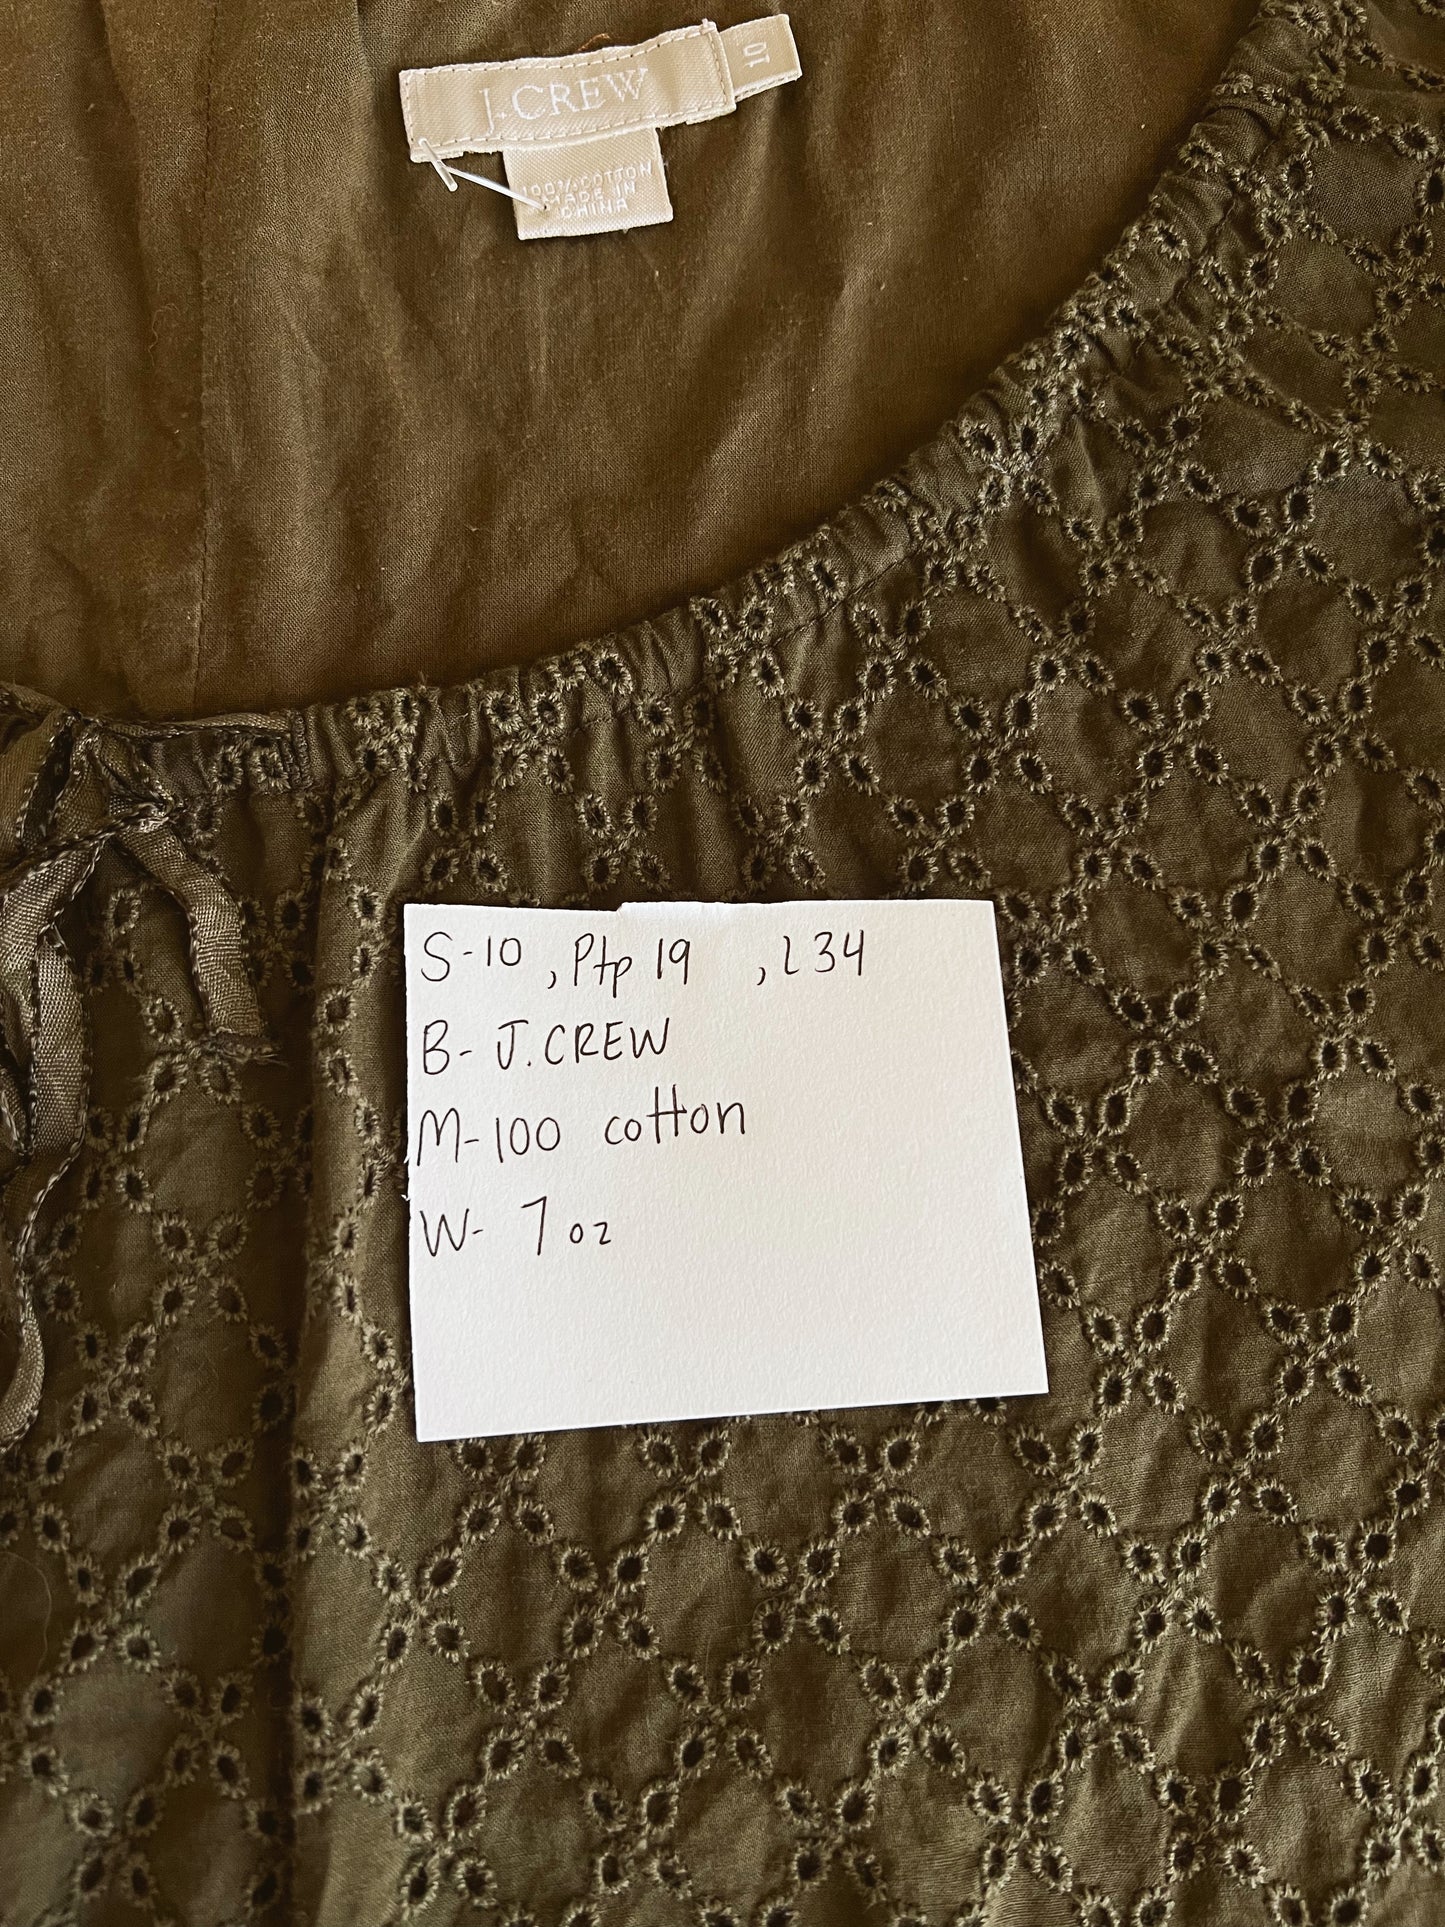 J.CREW 10
100% COTTON
MADE IN
CHINA
S-10, Ptp 19 , L 34
B- J.CREW
M-100 cotton
W- 7 oz